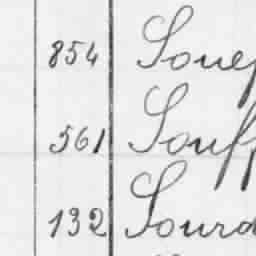 854 Soue
561 Souff
132 Sourd